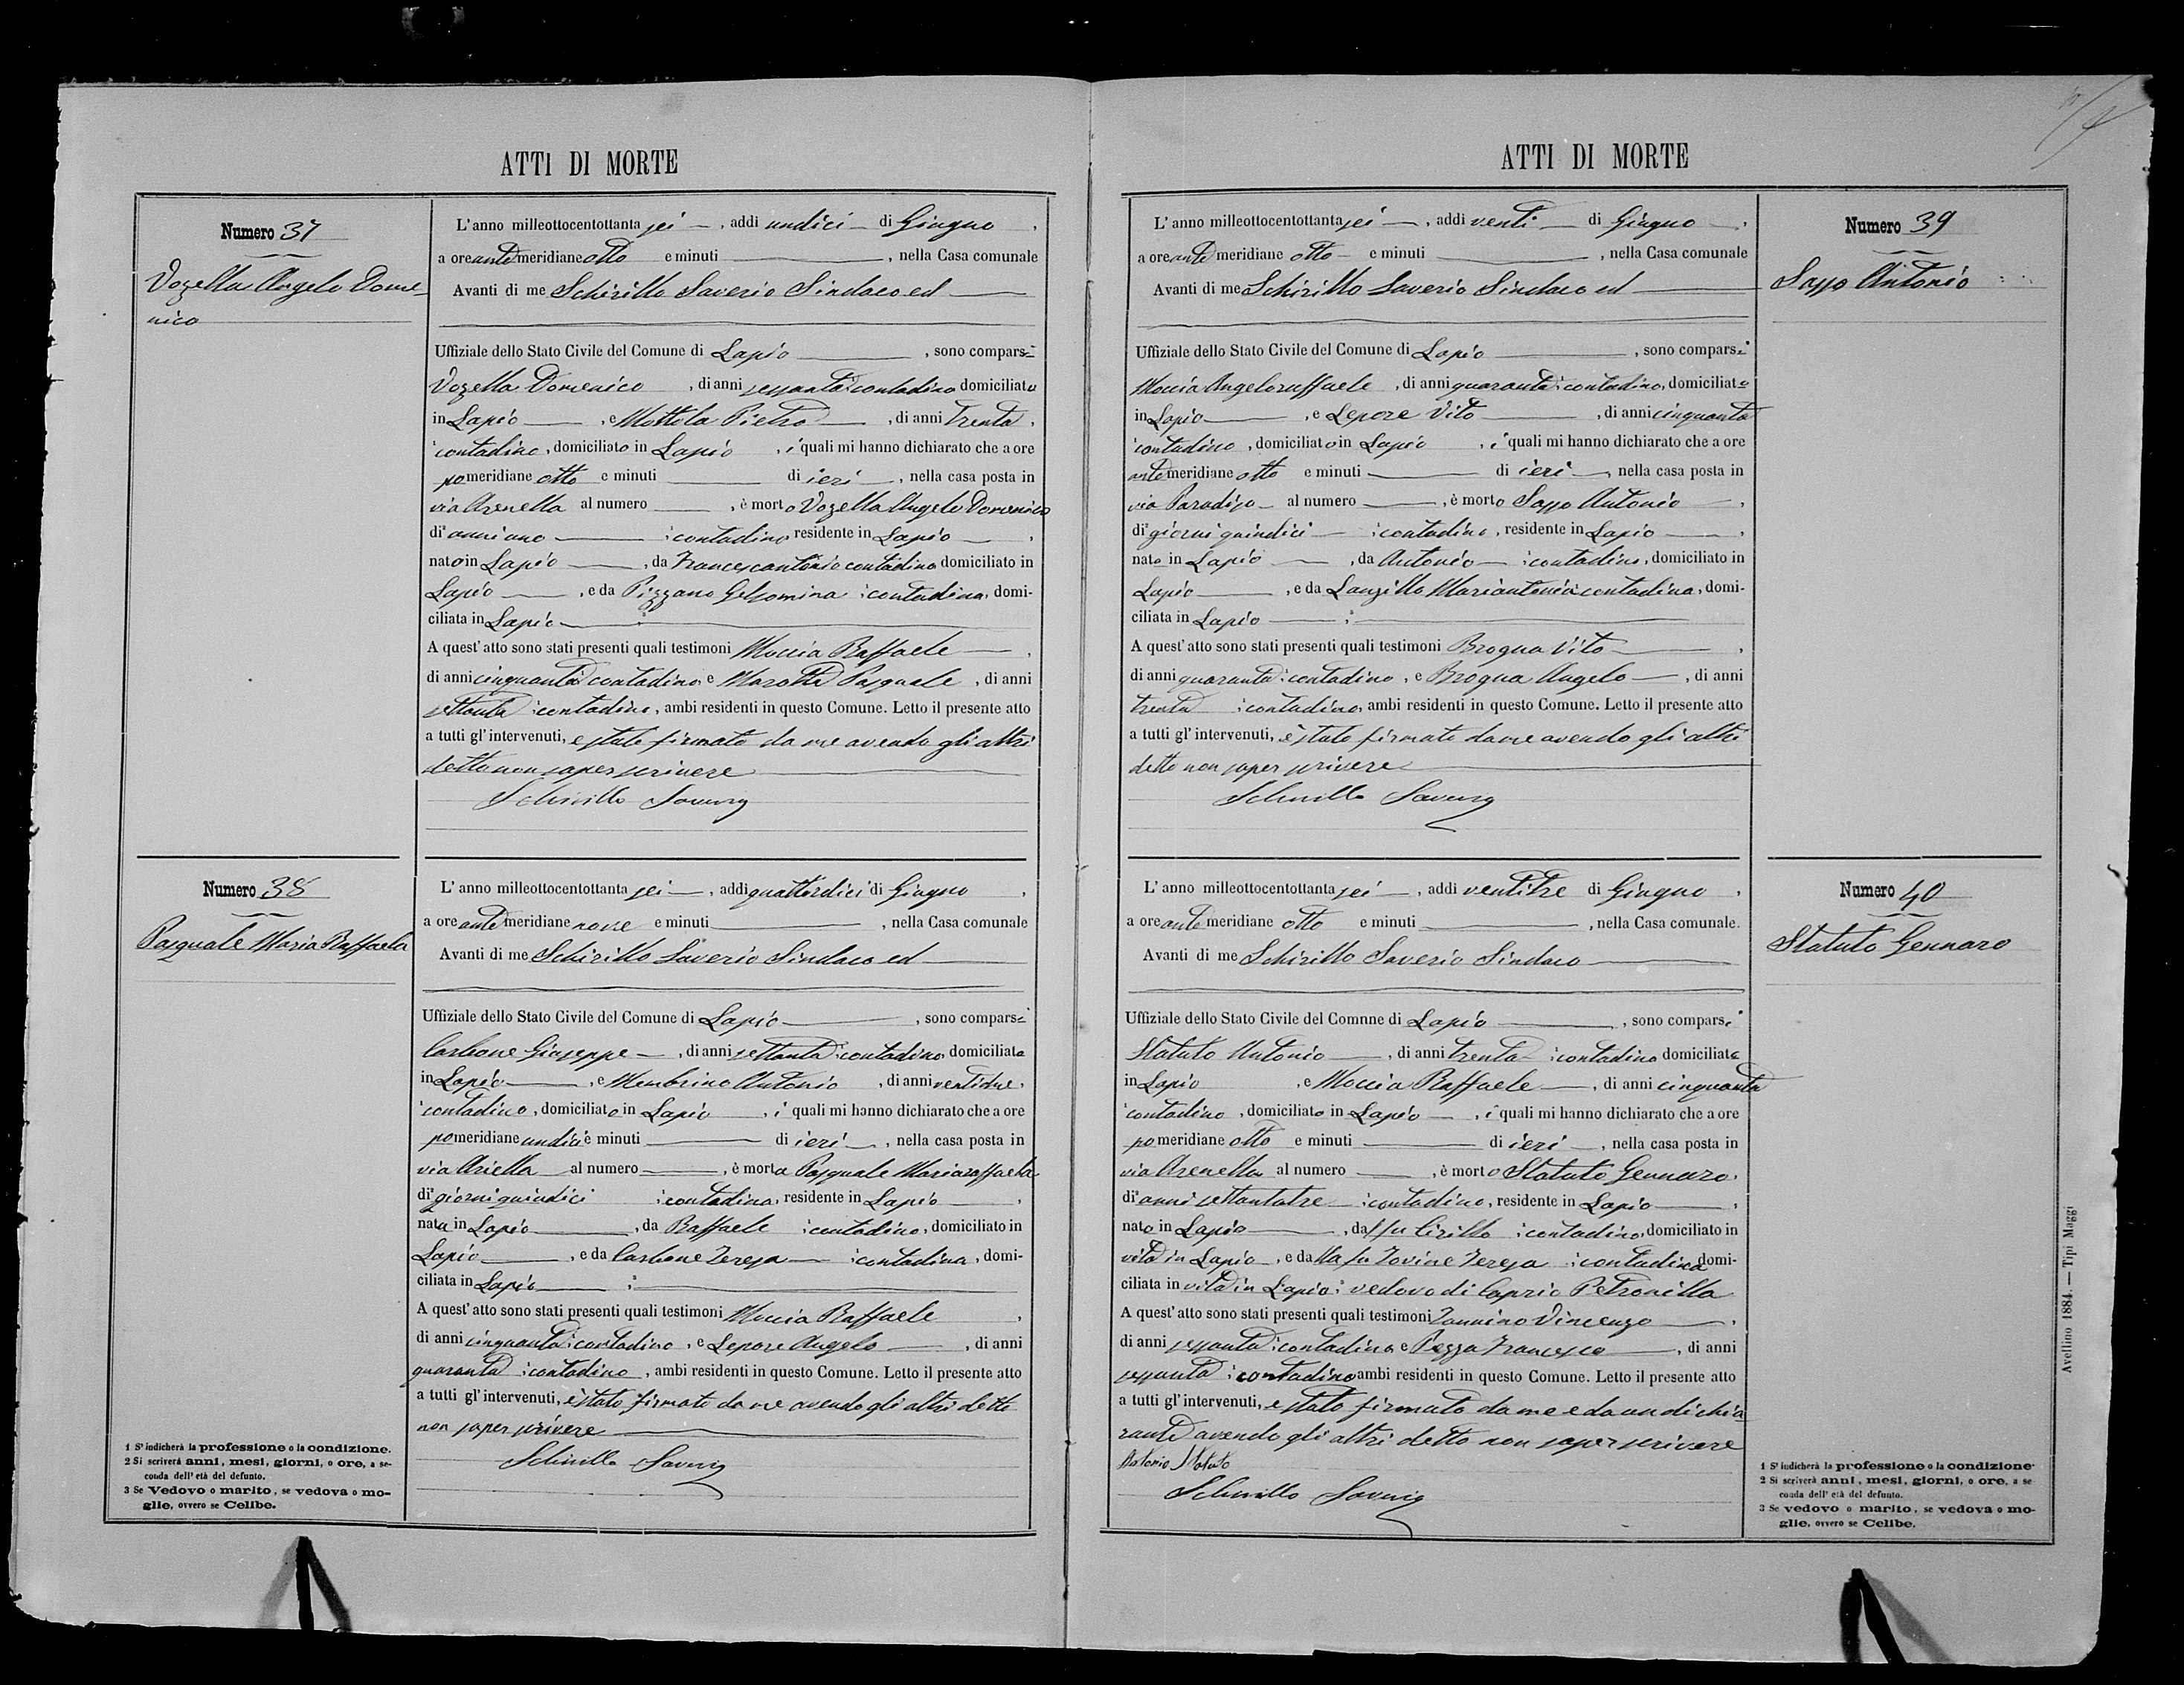 ATTI DI MORTE
Numero 37
Vozella Angelo Dome-
nico
L'anno milleottocentottanta sei, addi undici di Giugno,
a ore antemeridiane otto e minuti, nella Casa comunale
Avanti di me Schirillo Saverio Sindaco ed
Uffiziale dello Stato Civile del Comune di Lapio, sono comparsi
Vozella Domenico, di anni sessanta contadino domiciliato
in Lapio, e Mottola Pietro, di anni trenta,
contadino, domiciliato in Lapio, i quali mi hanno dichiarato che a ore
pomeridiane otto e minuti di ieri, nella casa posta in
via Arenella al numero, è morto Vozella Angelo Domenico
di anni uno contadino residente in Lapio,
nato in Lapio, da Francescantonio contadino domiciliato in
Lapio, e da Pizzano Gelsomina contadina, domi-
ciliata in Lapio
A quest'atto sono stati presenti quali testimoni Moccia Raffaele,
di anni cinquanta contadino e Marotta Pasquale, di anni
settanta contadino, ambi residenti in questo Comune. Letto il presente atto
a tutti gl'intervenuti, è stato firmato da me avendo gli altri
detto non saper scrivere
Schirillo Saverio
Numero 38
Pasquale Maria Raffaela
L'anno milleottocentottanta sei, addi quattordici di Giugno,
a ore antemeridiane nove e minuti, nella Casa comunale
Avanti di me Schirillo Saverio Sindaco ed
Uffiziale dello Stato Civile del Comune di Lapio, sono comparsi
Carbone Giuseppe, di anni settanta contadino domiciliato
in Lapio, e Membrino Antonio, di anni ventidue,
contadino, domiciliato in Lapio, i quali mi hanno dichiarato che a ore
pomeridiane undici e minuti di ieri, nella casa posta in
via Ariella al numero, è morta Pasquale Mariaraffaela
di giorni quindici contadina, residente in Lapio,
nata in Lapio, da Raffaele contadino, domiciliato in
Lapio, e da Carbone Teresa contadina, domi-
ciliata in Lapio
A quest'atto sono stati presenti quali testimoni Moccia Raffaele,
di anni cinquanta contadino, e Lepore Angelo, di anni
quaranta contadino, ambi residenti in questo Comune. Letto il presente atto
a tutti gl'intervenuti, è stato firmato da me avendo gli altri detto
non saper scrivere
Schirillo Saverio
1 S'indicherà la professione o la condizione.
2 Si scriverà anni, mesi, giorni, o ore, a se-
conda dell'età del defunto.
3 Se Vedovo o marito, se vedova o mo-
glie, ovvero se Celibe.
ATTI DI MORTE
Numero 39
Sasso Antonio
L'anno milleottocentottanta sei, addi venti di Giugno,
a ore antemeridiane otto e minuti, nella Casa comunale
Avanti di me Schirillo Saverio Sindaco ed
Uffiziale dello Stato Civile del Comune di Lapio, sono comparsi
Moccia Angeloraffaele, di anni quaranta contadino, domiciliato
in Lapio, e Lepore Vito, di anni cinquanta
contadino, domiciliato in Lapio, i quali mi hanno dichiarato che a ore
antemeridiane otto e minuti di ieri, nella casa posta in
via Paradiso al numero, è morto Sasso Antonio,
di giorni quindici contadino, residente in Lapio,
nato in Lapio, da Antonio contadino, domiciliato in
Lapio, e da Lanzillo Mariantonia contadina, domi-
ciliata in Lapio
A quest'atto sono stati presenti quali testimoni Brogna Vito,
di anni quaranta contadino, e Brogna Angelo, di anni
trenta contadino, ambi residenti in questo Comune. Letto il presente atto
a tutti gl'intervenuti, è stato firmato da me avendo gli altri
detto non saper scrivere
Schirillo Saverio
Numero 40
Statuto Gennaro
L'anno milleottocentottanta sei, addi ventitre di Giugno,
a ore antemeridiane otto e minuti, nella Casa comunale.
Avanti di me Schirillo Saverio Sindaco
Uffiziale dello Stato Civile del Comnne di Lapio, sono comparsi
Statuto Antonio, di anni trenta contadino domiciliato
in Lapio, e Moccia Raffaele, di anni cinquanta
contadino, domiciliato in Lapio, i quali mi hanno dichiarato che a ore
pomeridiane otto e minuti di ieri, nella casa posta in
via Arenella al numero, è morto Statuto Gennaro,
di anni settantatre contadino, residente in Lapio,
nato in Lapio, dal fu Cirillo contadino, domiciliato in
vita in Lapio, e dalla fu Iovine Teresa contadina domi-
ciliata in vita in Lapio; vedovo di Caprio Petronilla
A quest'atto sono stati presenti quali testimoni Iannino Vincenzo,
di anni sessanta contadino e Pezza Francesco, di anni
sessanta contadino ambi residenti in questo Comune. Letto il presente atto
a tutti gl'intervenuti, è stato firmato da me e da un dichia
rante avendo gli altri detto non saper scrivere
Antonio Statuto
Schirillo Saverio
1 S'indicherà la professione o la condizione.
2 Si scriverà anni, mesi, giorni, o ore, a se
conda dell'età del defunto.
3 Se vedovo o marito, se vedova o mo-
glie, ovvero se Celibe.
Avellino 1884. — Tipi Maggi